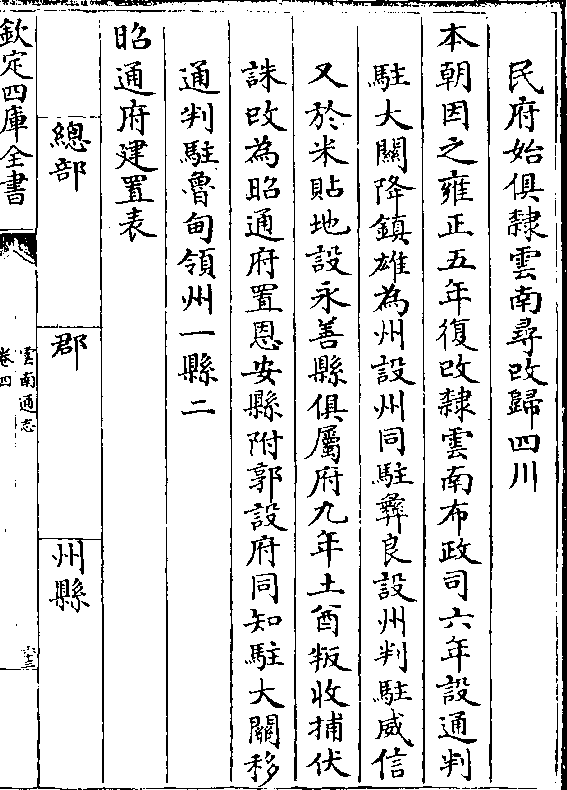 民府始俱隷雲南尋改歸四川
本朝因之雍正五年復改隷雲南布政司六年設通判
駐大關降鎮雄為州設州同駐彝良設州判駐威信
又於米貼地設永善縣俱屬府九年土酋叛收捕伏
誅改為昭通府置恩安縣附郭設府同知駐大關移
通判駐魯甸領州一縣二
昭通府建置表
總部
郡
州縣
欽定四庫全書
雲南通志
卷四